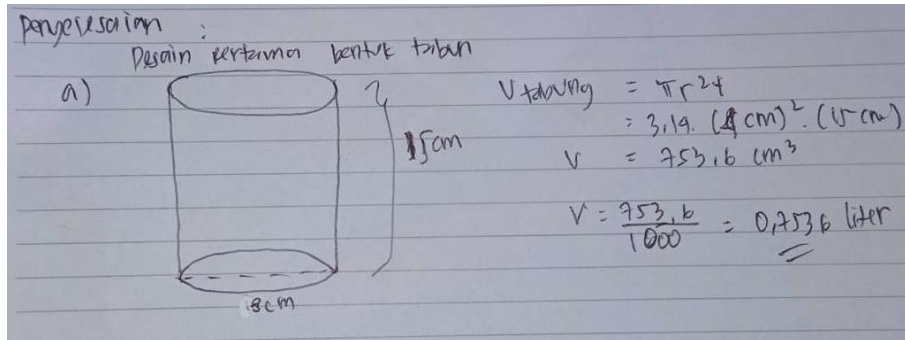 Penyelesaian :
Desain pertama bentuk tabun
a)
15cm
8cm
V tabung = πr²t
= 3,14. (4 cm)². (15 cm)
V = 753,6 cm³
V = 753,6 / 1000 = 0,7536 liter